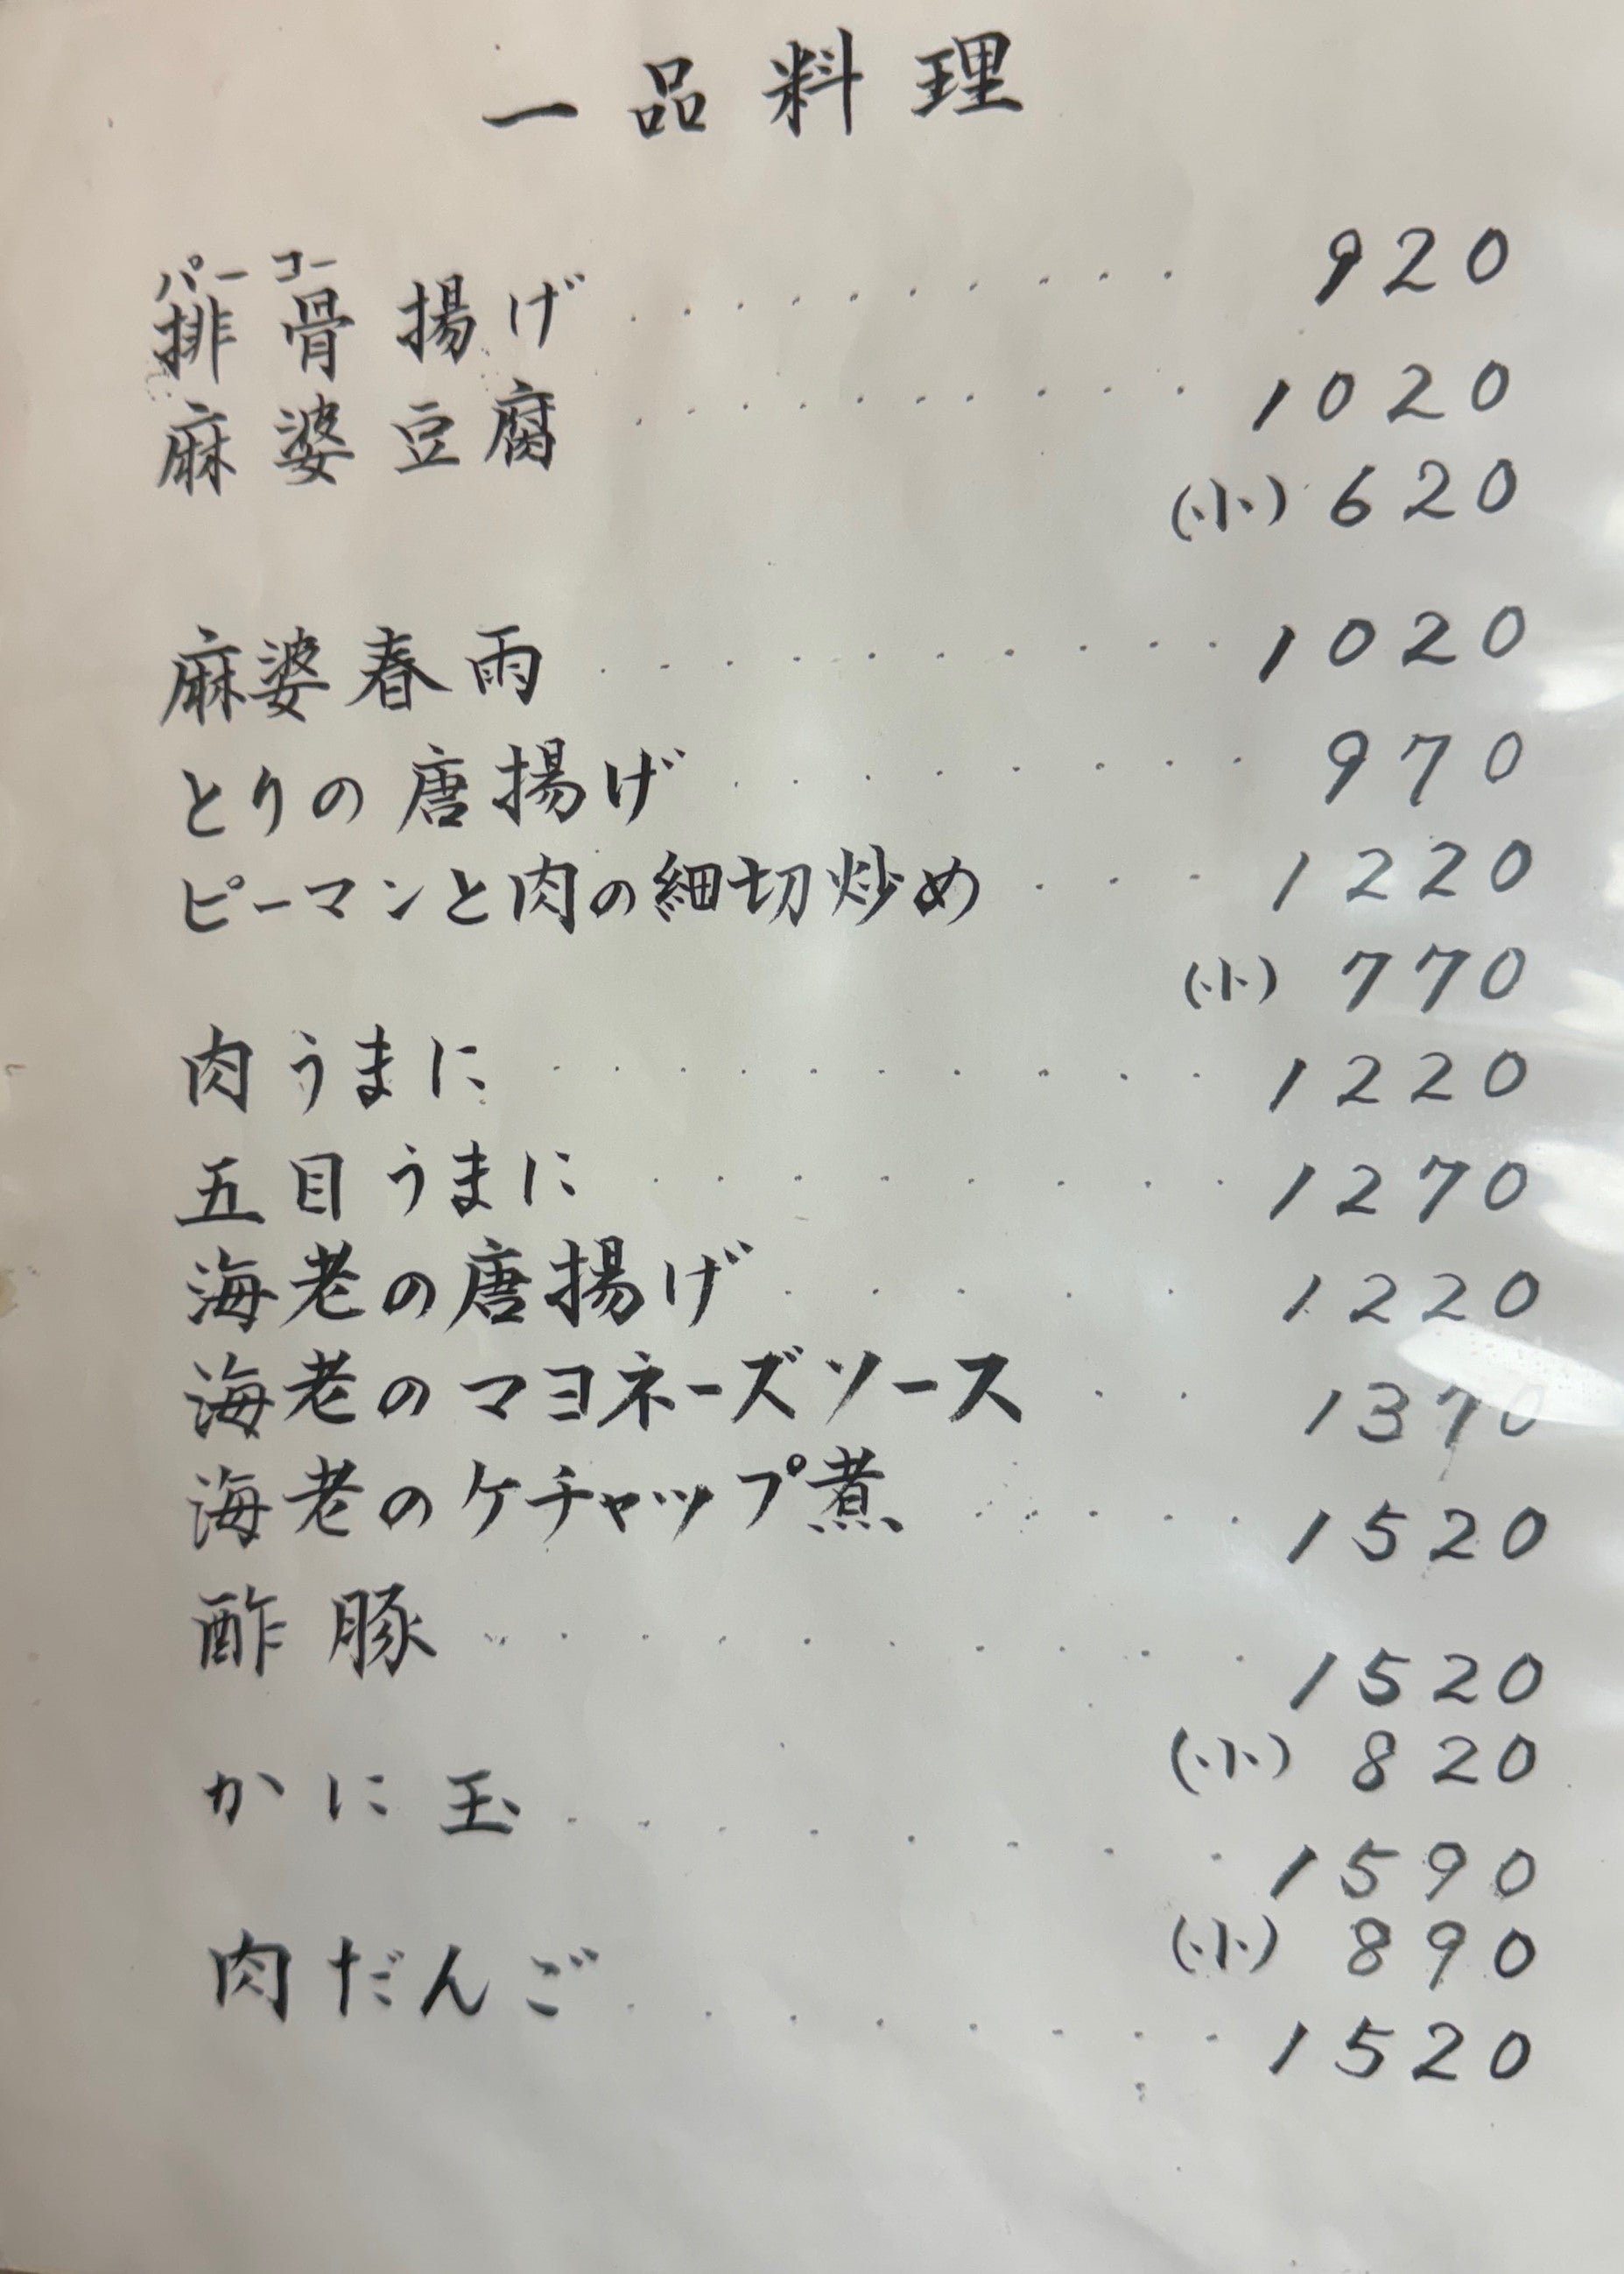 一品料理
パーコー
排骨揚げ ・・・・・・・・・ 920
麻婆豆腐 ・・・・・・・・・ 1020
(小) 620
麻婆春雨 ・・・・・・・・・ 1020
とりの唐揚げ ・・・・・・・ 970
ピーマンと肉の細切炒め ・・・ 1220
(小) 770
肉うまに ・・・・・・・・・ 1220
五目うまに ・・・・・・・・ 1270
海老の唐揚げ ・・・・・ 1220
海老のマヨネーズソース ・・ 1370
海老のケチャップ煮 ・・・・・ 1520
酢豚 ・・・・・・・・・・ 1520
(小) 820
かに玉 ・・・・・・・・ 1590
(小) 890
肉だんご ・・・・・・・・ 1520